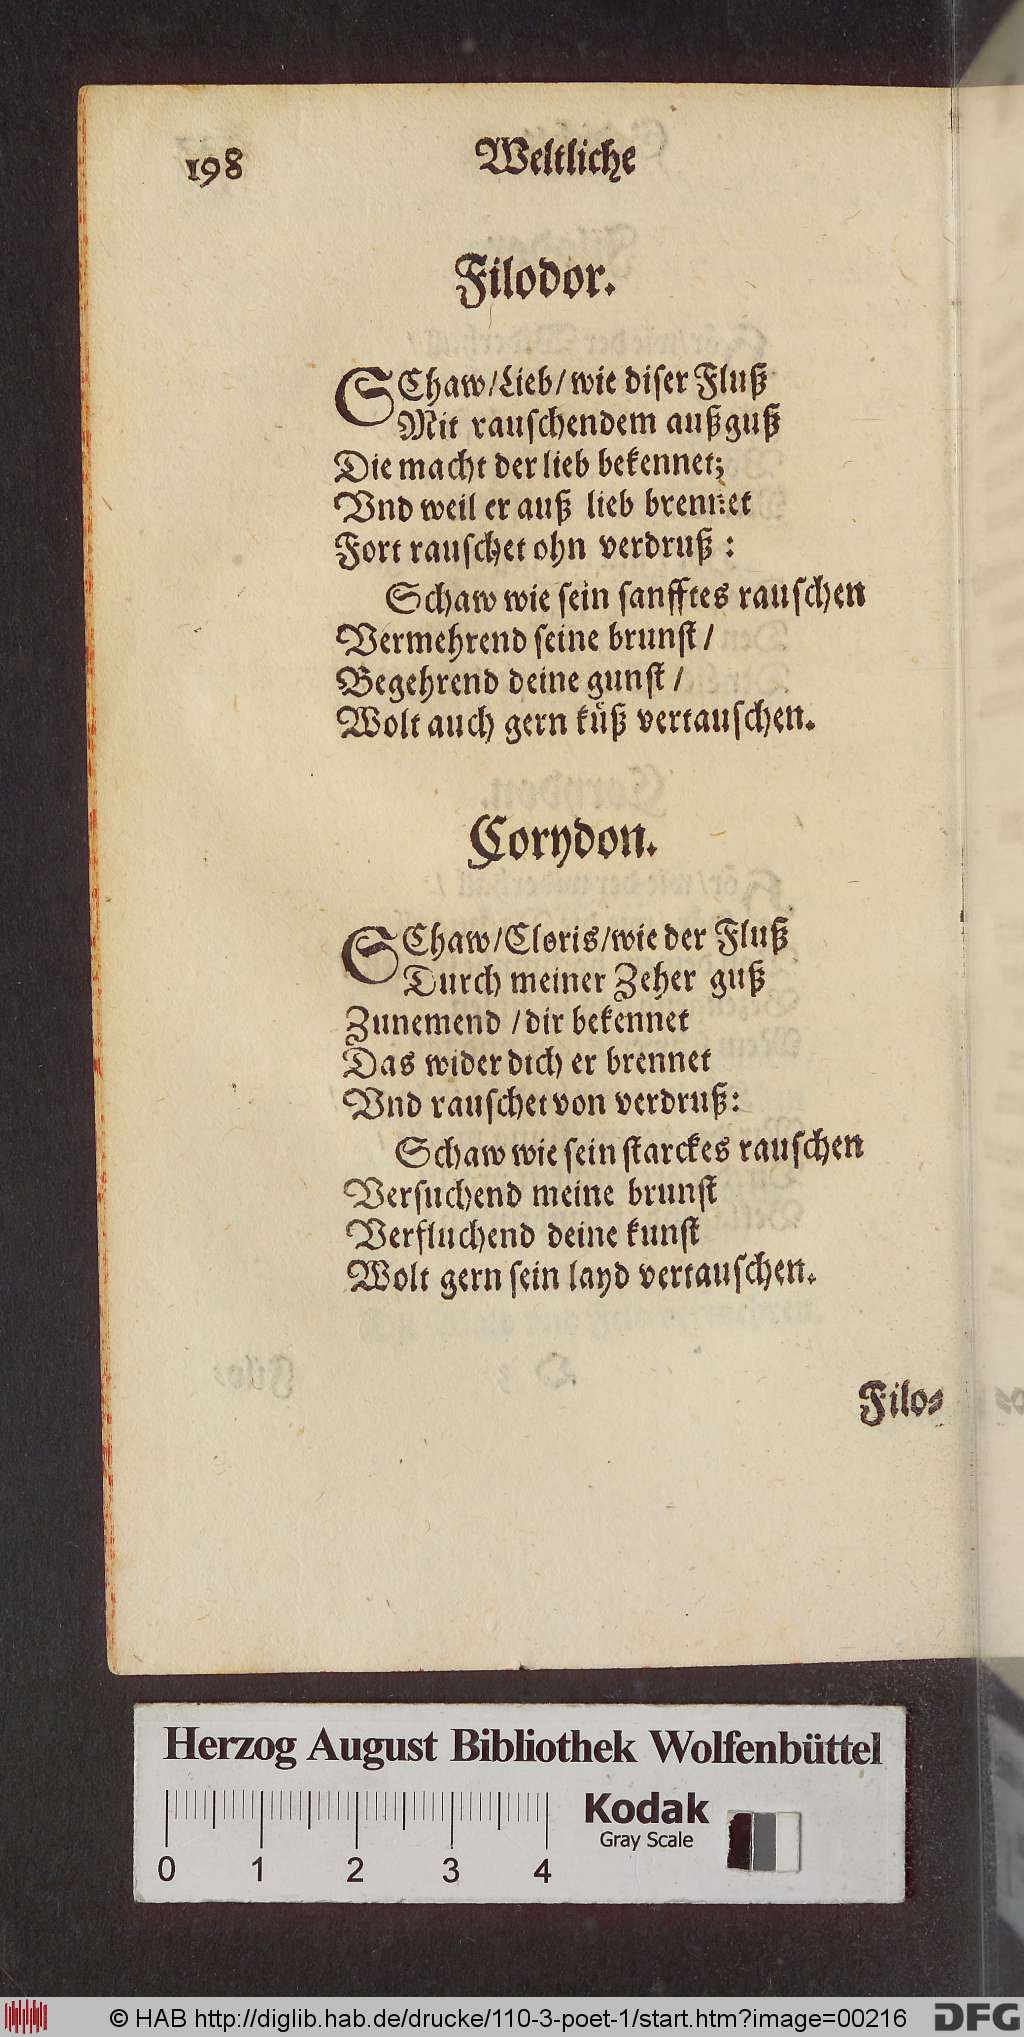 198 Weltliche
Filodor.
SChaw/Lieb/wie diser Fluß
Mit rauschendem außguß
Die macht der lieb bekennet;
Vnd weil er auß lieb brennet
Fort rauschet ohn verdruß:
Schaw wie sein sanfftes rauschen
Vermehrend seine brunst/
Begehrend deine gunst/
Wolt auch gern küß vertauschen.
Corydon.
SChaw/Cloris/wie der Fluß
Durch meiner Zeher guß
Zunemend/dir bekennet
Das wider dich er brennet
Vnd rauschet von verdruß:
Schaw wie sein starckes rauschen
Versuchend meine brunst
Verfluchend deine kunst
Wolt gern sein layd vertauschen.
Filo⸗
Herzog August Bibliothek Wolfenbüttel
Kodak
Gray Scale
0 1 2 3 4
© HAB http://diglib.hab.de/drucke/110-3-poet-1/start.htm?image=00216
DFG